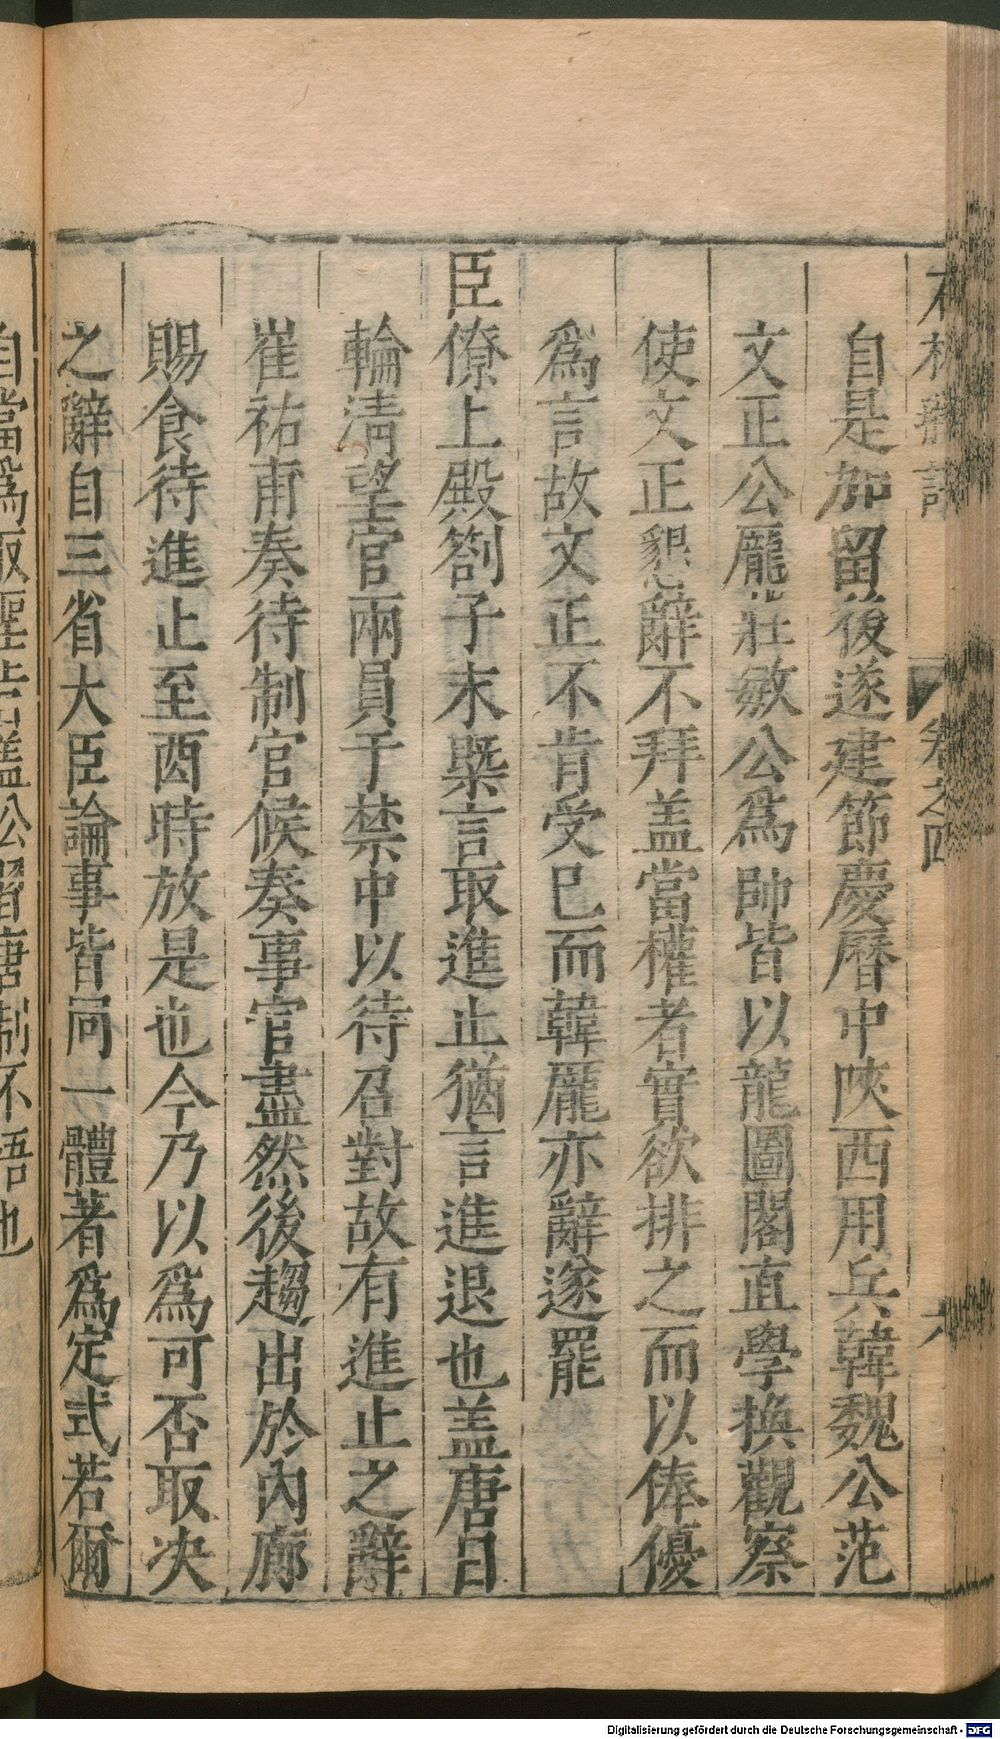 石林燕語 卷之四 六
自是加留後遂建節慶曆中陜西用兵韓魏公范
文正公龎莊敏公爲帥皆以龍圖閣直學換觀察
使文正懇辭不拜盖當權者實欲排之而以俸優
爲言故文正不肯受已而韓龎亦辭遂罷
臣僚上殿劄子末槩言取進止猶言進退也盖唐日
輪清望官兩員于禁中以待召對故有進止之辭
崔祐甫奏待制官候奏事官盡然後趨出於內廊
賜食待進止至酉時放是也今乃以爲可否取决
之辭自三省大臣論事皆同一體著爲定式若爾
自當爲取聖旨蓋公習唐制不悟也
Digitalisierung gefördert durch die Deutsche Forschungsgemeinschaft - DFG